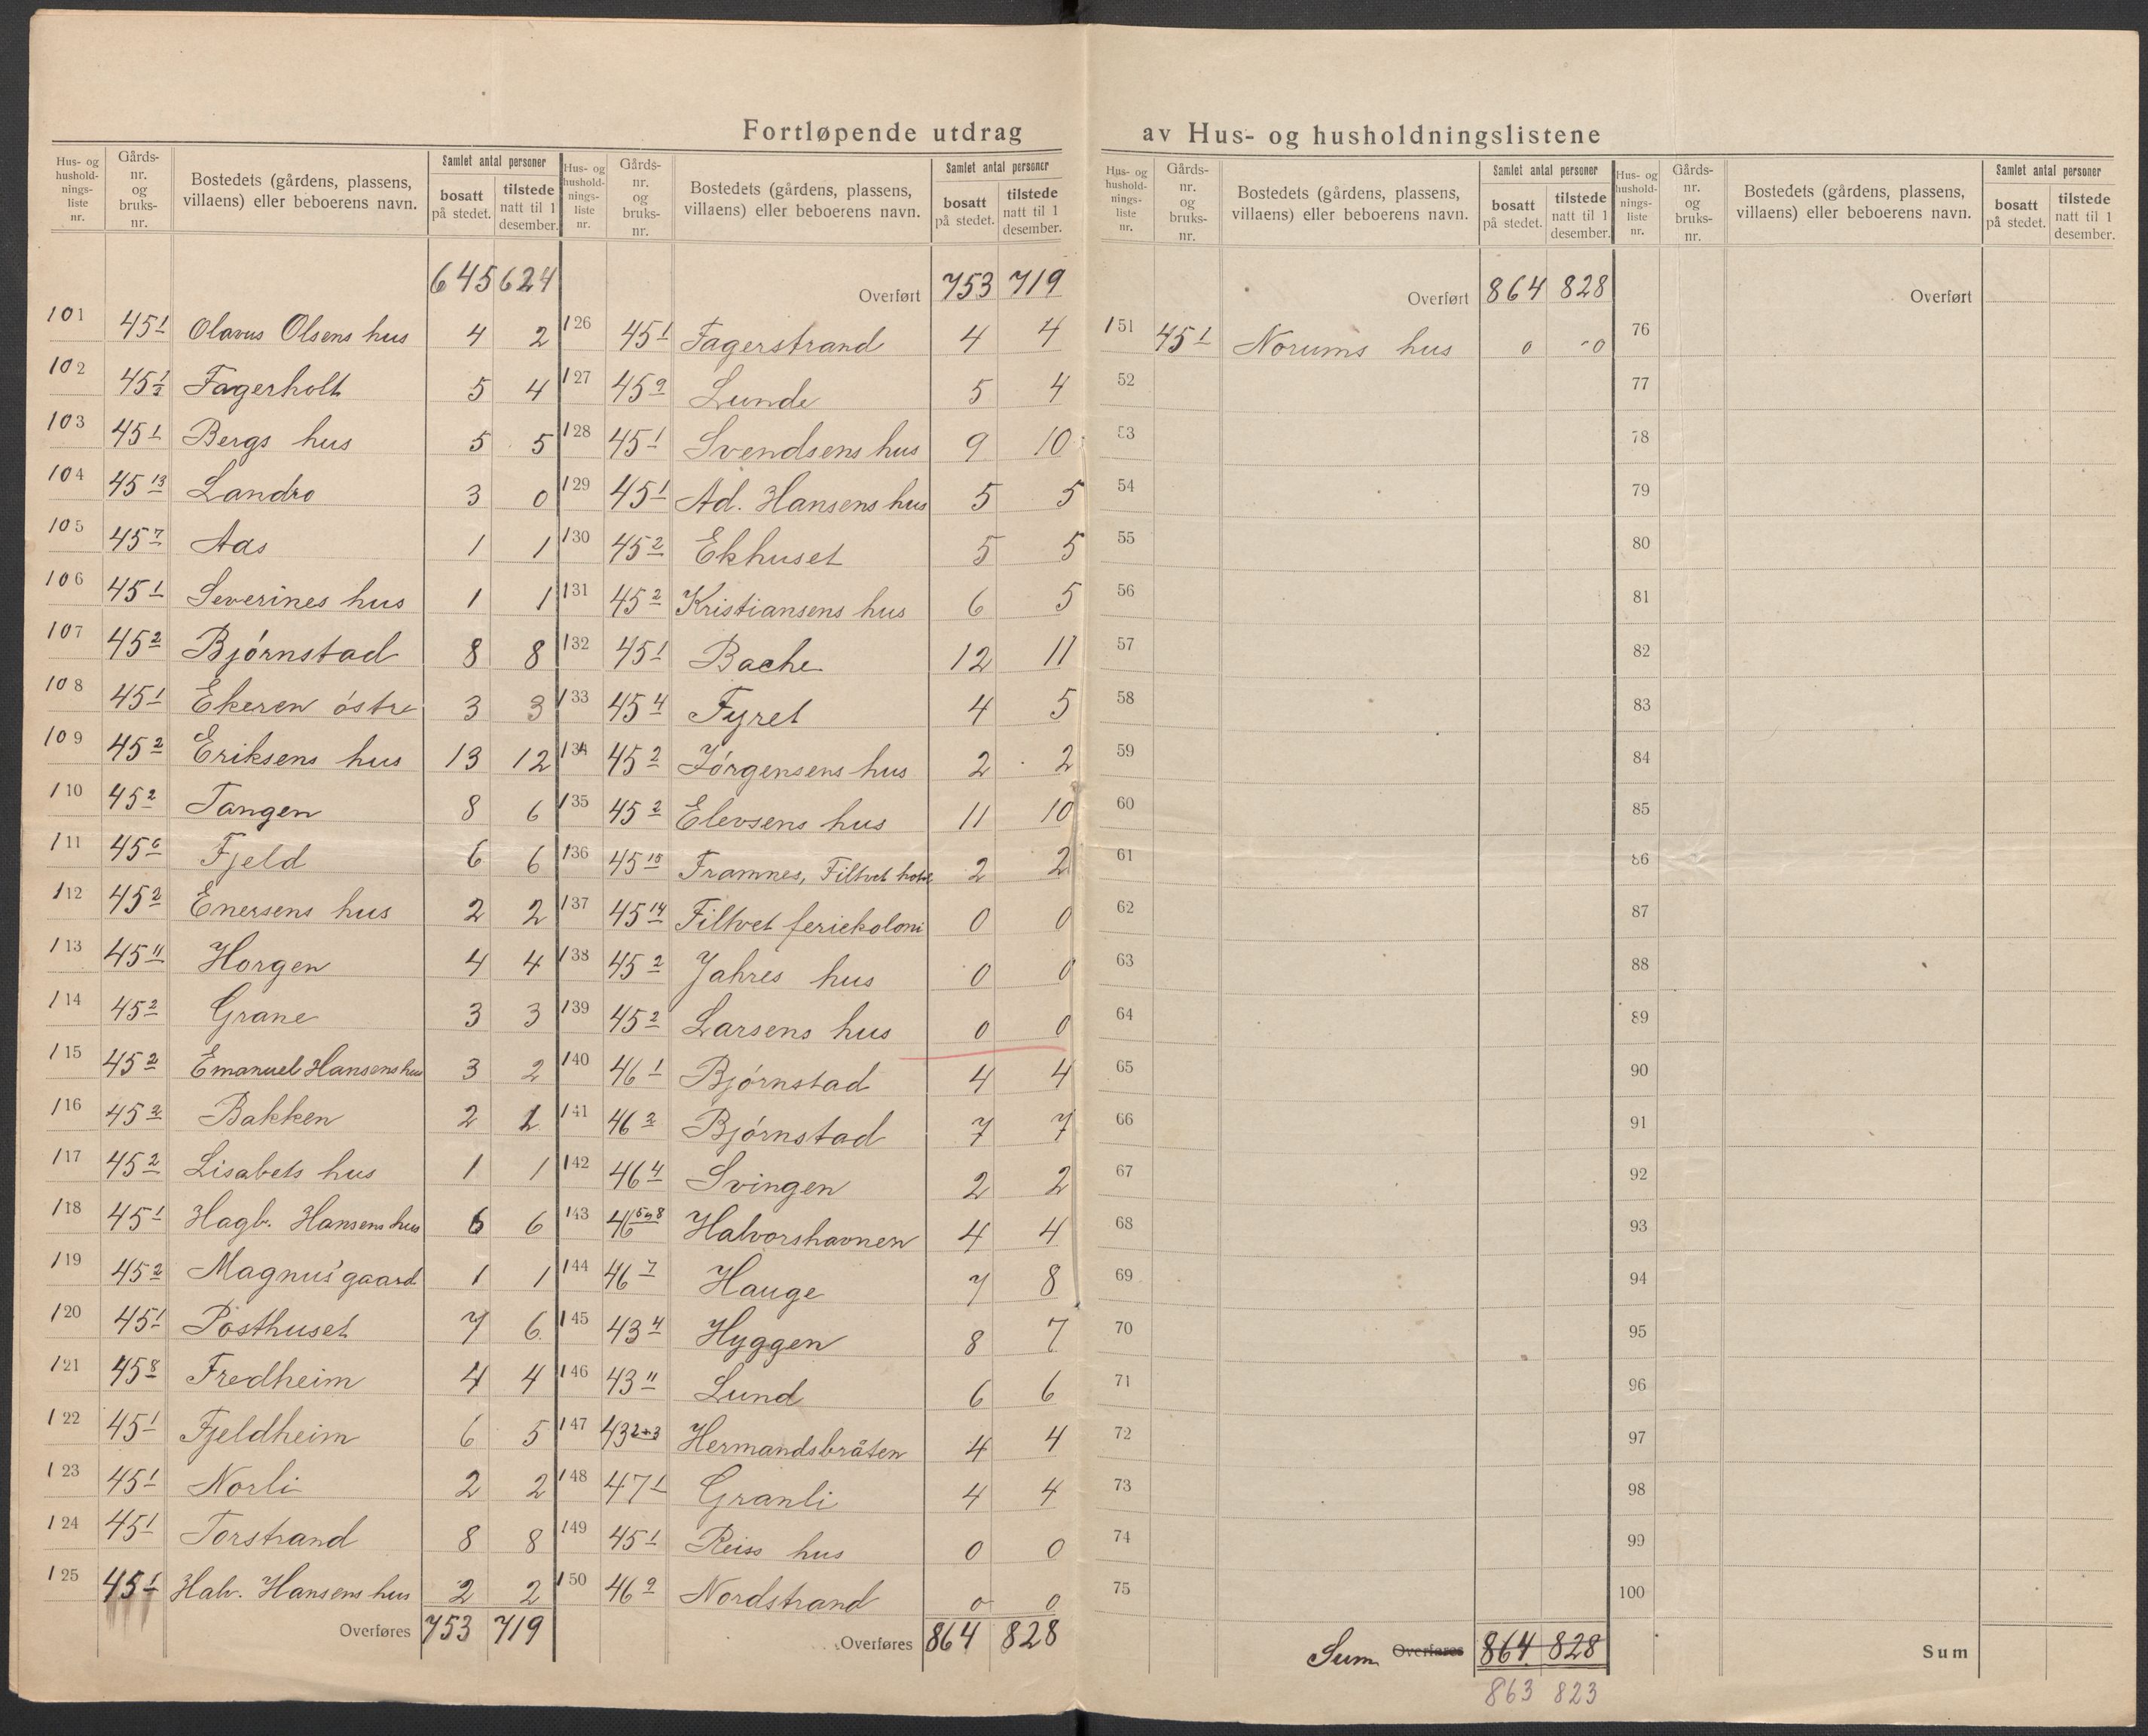 Fortløpende utdrag av Hus- og husholdningslistene
Hus- og hushold-nings-liste nr. Gårds-nr. og bruks-nr. Bostedets (gårdens, plassens, villaens) eller beboerens navn. Samlet antal personer bosatt på stedet. tilstede natt til 1 desember.
645 624
101 45 1 Olavus Olsens hus 4 2
102 45 1/2 Fagerholt 5 4
103 45 1 Bergs hus 5 5
104 45 13 Landro 3 0
105 45 7 Aas 1 1
106 45 1 Severines hus 1 1
107 45 2 Bjørnstad 8 8
108 45 1 Ekeren østre 3 3
109 45 2 Eriksens hus 13 12
110 45 2 Tangen 8 6
111 45 6 Fjeld 6 6
112 45 2 Enersens hus 2 2
113 45 11 Horgen 4 4
114 45 2 Grane 3 3
115 45 2 Emanuel Hansens hus 3 2
116 45 2 Bakken 2 1
117 45 2 Lisabets hus 1 1
118 45 1 Hagb. Hansens hus 6 6
119 45 2 Magnus'gaard 1 1
120 45 1 Posthuset 7 6
121 45 8 Fredheim 4 4
122 45 1 Fjeldheim 6 5
123 45 1 Norli 2 2
124 45 1 Torstrand 8 8
125 45 1 Halv. Hansens hus 2 2
Overføres 753 719
Hus- og hushold-nings-liste nr. Gårds-nr. og bruks-nr. Bostedets (gårdens, plassens, villaens) eller beboerens navn. Samlet antal personer bosatt på stedet. tilstede natt til 1 desember.
Overført 753 719
126 45 1 Fagerstrand 4 4
127 45 9 Lunde 5 4
128 45 1 Svendsens hus 9 10
129 45 1 Ad. Hansens hus 5 5
130 45 2 Ekhuset 5 5
131 45 2 Kristiansens hus 6 5
132 45 1 Bache 12 11
133 45 4 Fyret 4 5
134 45 2 Jørgensens hus 2 2
135 45 2 Elevsens hus 11 10
136 45 15 Framnes, Filtvet hotel 2 2
137 45 14 Filtvet feriekoloni 0 0
138 45 2 Jahres hus 0 0
139 45 2 Larsens hus 0 0
140 46 1 Bjørnstad 4 4
141 46 2 Bjørnstad 7 7
142 46 4 Svingen 2 2
143 46 5 og 8 Halvorshavnen 4 4
144 46 7 Hauge 7 8
145 43 4 Hyggen 8 7
146 43 11 Lund 6 6
147 43 2+3 Hermandsbråten 4 4
148 47 1 Granli 4 4
149 45 1 Reiss hus 0 0
150 46 9 Nordstrand 0 0
Overføres 864 828
Hus- og hushold-nings-liste nr. Gårds-nr. og bruks-nr. Bostedets (gårdens, plassens, villaens) eller beboerens navn. Samlet antal personer bosatt på stedet. tilstede natt til 1 desember.
Overført 864 828
151 45 1 Norums hus 0 0
52
53
54
55
56
57
58
59
60
61
62
63
64
65
66
67
68
69
70
71
72
73
74
75
Sum Overføres 864 828
863 823
Hus- og hushold-nings-liste nr. Gårds-nr. og bruks-nr. Bostedets (gårdens, plassens, villaens) eller beboerens navn. Samlet antal personer bosatt på stedet. tilstede natt til 1 desember.
Overført
76
77
78
79
80
81
82
83
84
85
86
87
88
89
90
91
92
93
94
95
96
97
98
99
100
Sum